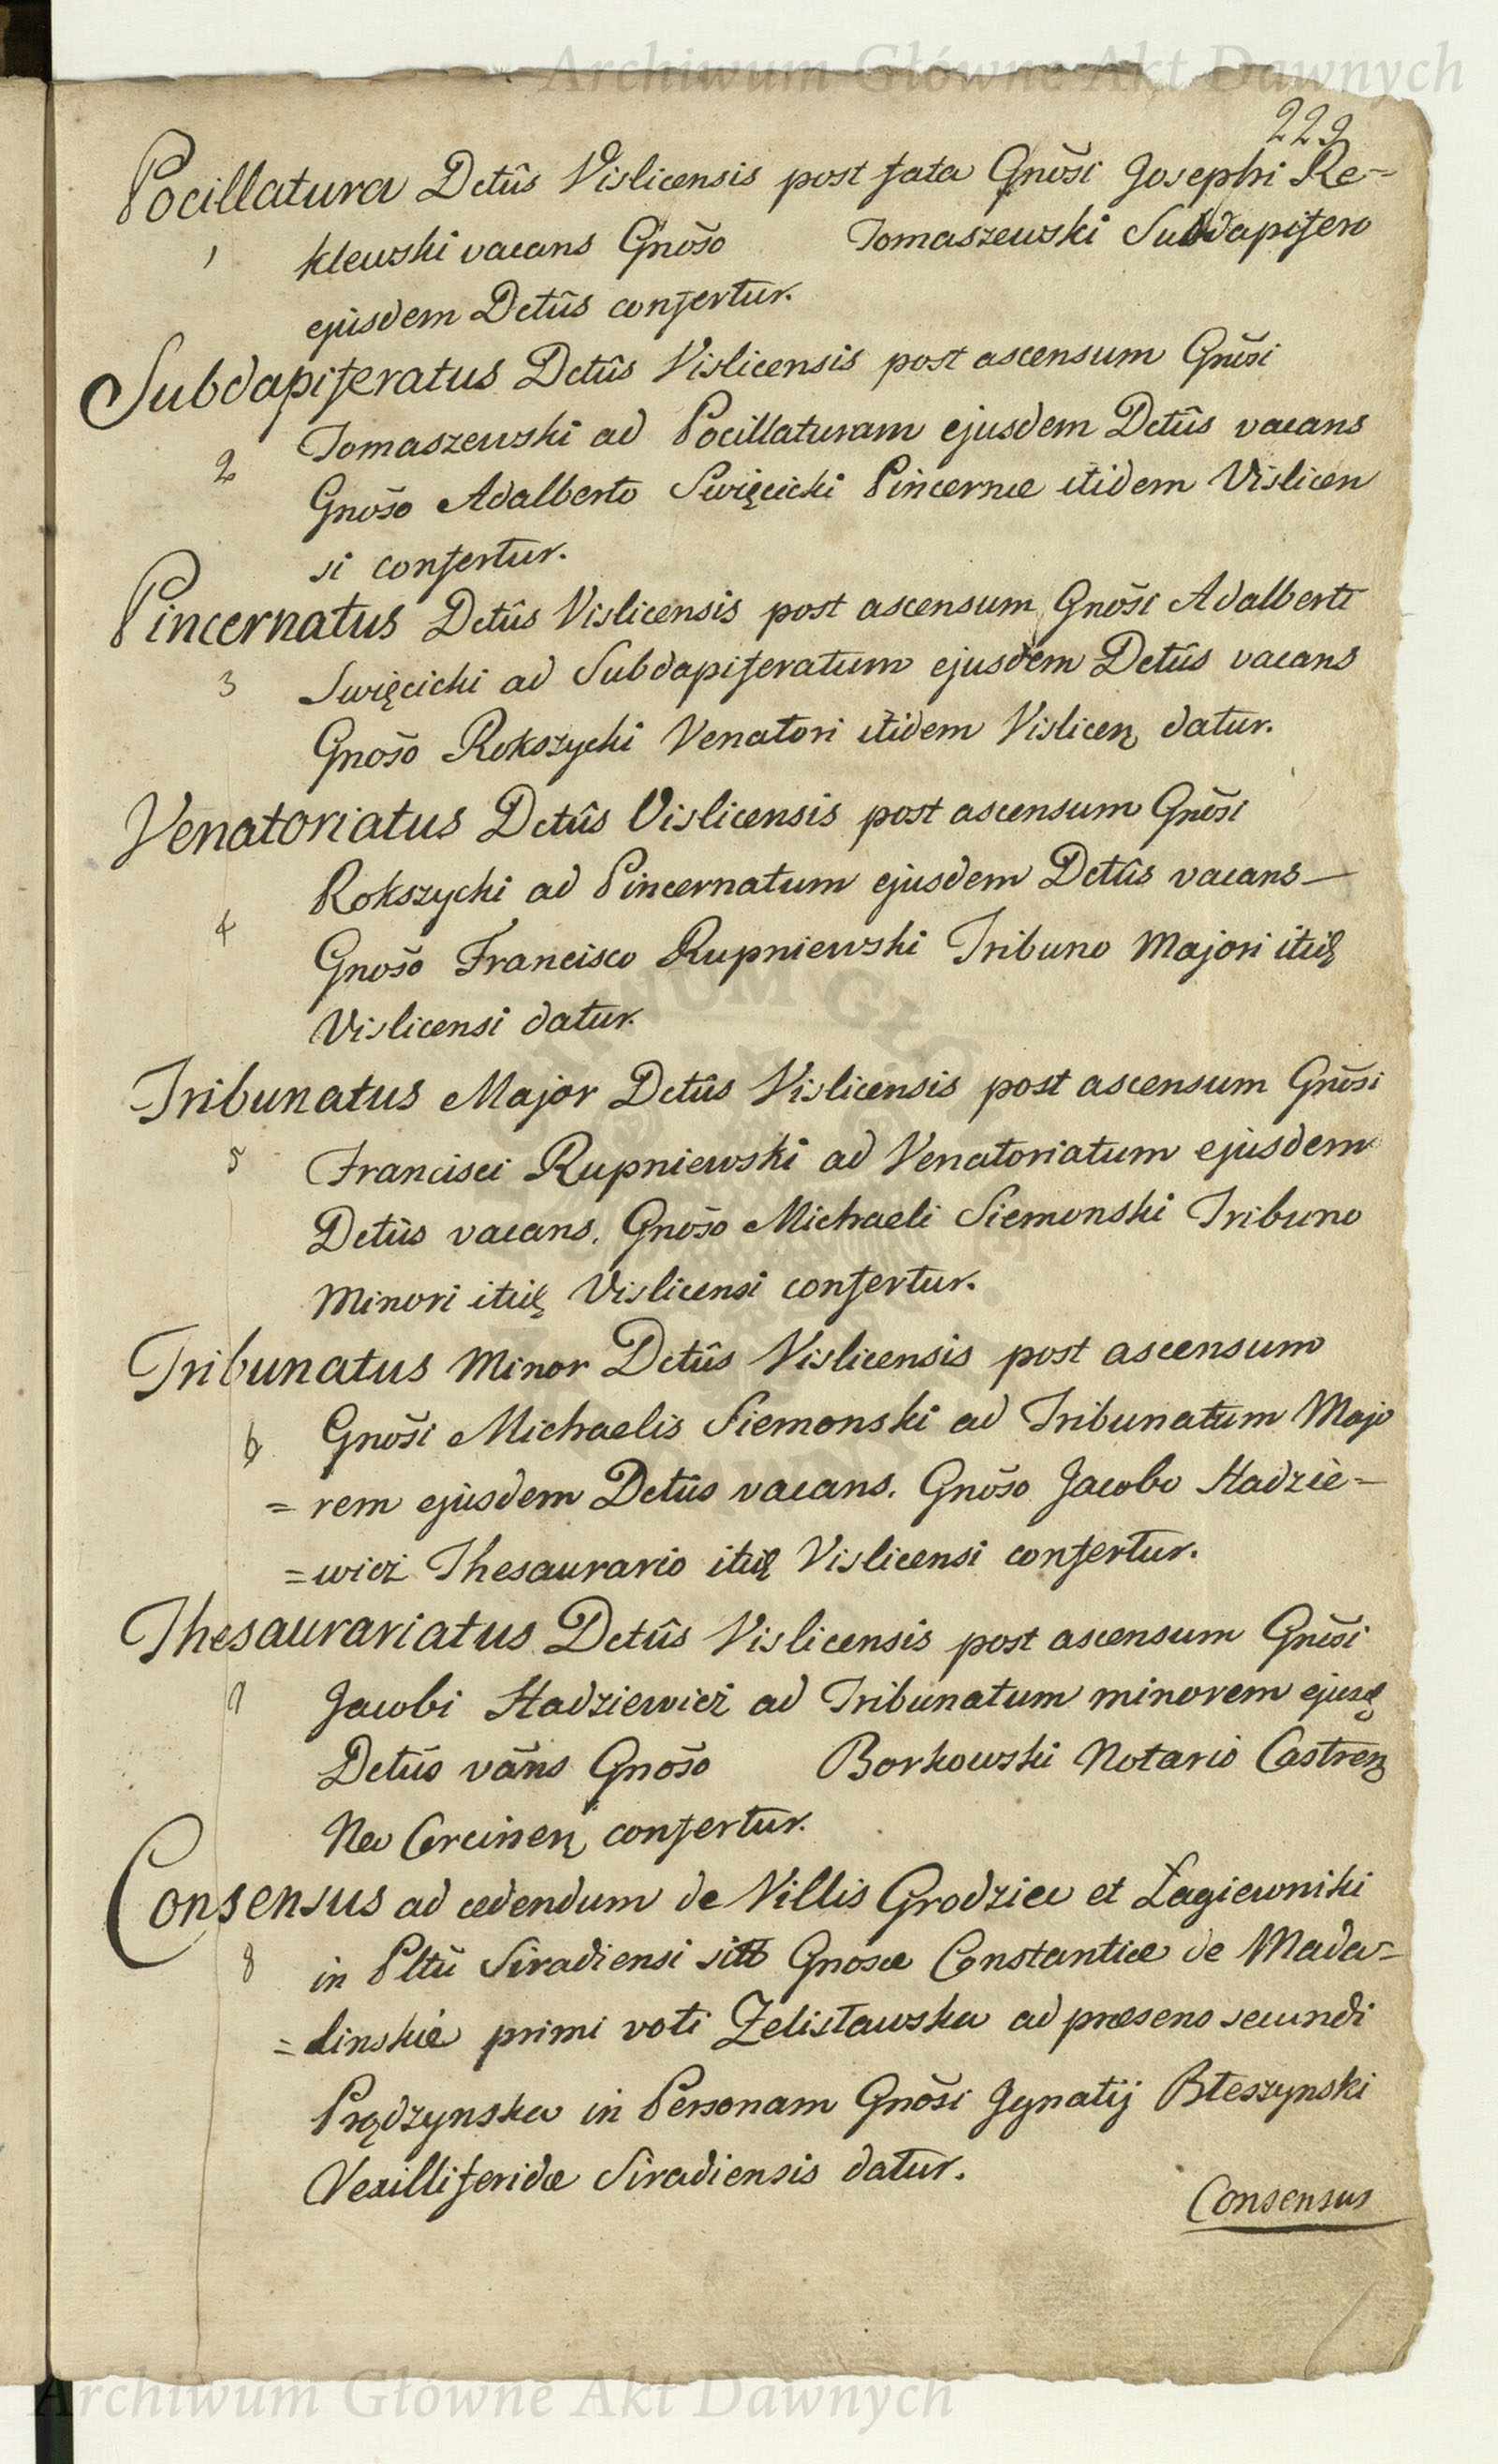 Archiwum Główne Akt Dawnych
223
Pocillatura Dctûs Vislicensis post fata Gnōsi Josephi Re=
1 klewski vacans Gnōso Tomaszewski Subdapifero
ejusdem Dctûs confertur.
Subdapiferatus Dctûs Vislicensis post ascensum Gnōsi
Tomaszewski ad Pocillaturam ejusdem Dctûs vacans
2 Gnōso Adalberto Swięcicki Pincernæ itidem Vislicen
si confertur.
Pincernatus Dctûs Vislicensis post ascensum Gnōsi Adalberti
3 Swięcicki ad Subdapiferatum ejusdem Dctûs vacans
Gnoso Rokszycki Venatori itidem Vislicen datur.
Venatoriatus Dctûs Vislicensis post ascensum Gnōsi
Rokszycki ad Pincernatum ejusdem Dctûs vacans—
4 Gnōso Francisco Rupniewski Tribuno Majori itid
Vislicensi datur.
Tribunatus Major Dctûs Vislicensis post ascensum Gnōsi
5 Francisci Rupniewski ad Venatoriatum ejusdem
Dctûs vacans. Gnōso Michaeli Siemonski Tribuno
Minori itid Vislicensi confertur.
Tribunatus Minor Dctûs Vislicensis post ascensum
6 Gnōsi Michaelis Siemonski ad Tribunatum Majo
=rem ejusdem Dctûs vacans. Gnōso Jacobo Hadzie=
=wicz Thesaurario itid Vislicensi confertur.
Thesaurariatus Dctûs Vislicensis post ascensum Gnōsi
7 Jacobi Hadziewicz ad Tribunatum minorem ejusd
Dctûs vāns Gnōso Borkowski Notario Castren
Neo Corcinen confertur.
Consensus ad cedendum de Villis Grodziec et Łagiewniki
8 in Pltū Siradiensi sitt Gnosæ Constantiæ de Mada=
=linskie primi voti Zelisławska ad præsens secundi
Prądzynska in Personam Gnōsi Jgnatij Błeszynski
Vexilliferidæ Siradiensis datur.
Consensus
Archiwum Główne Akt Dawnych